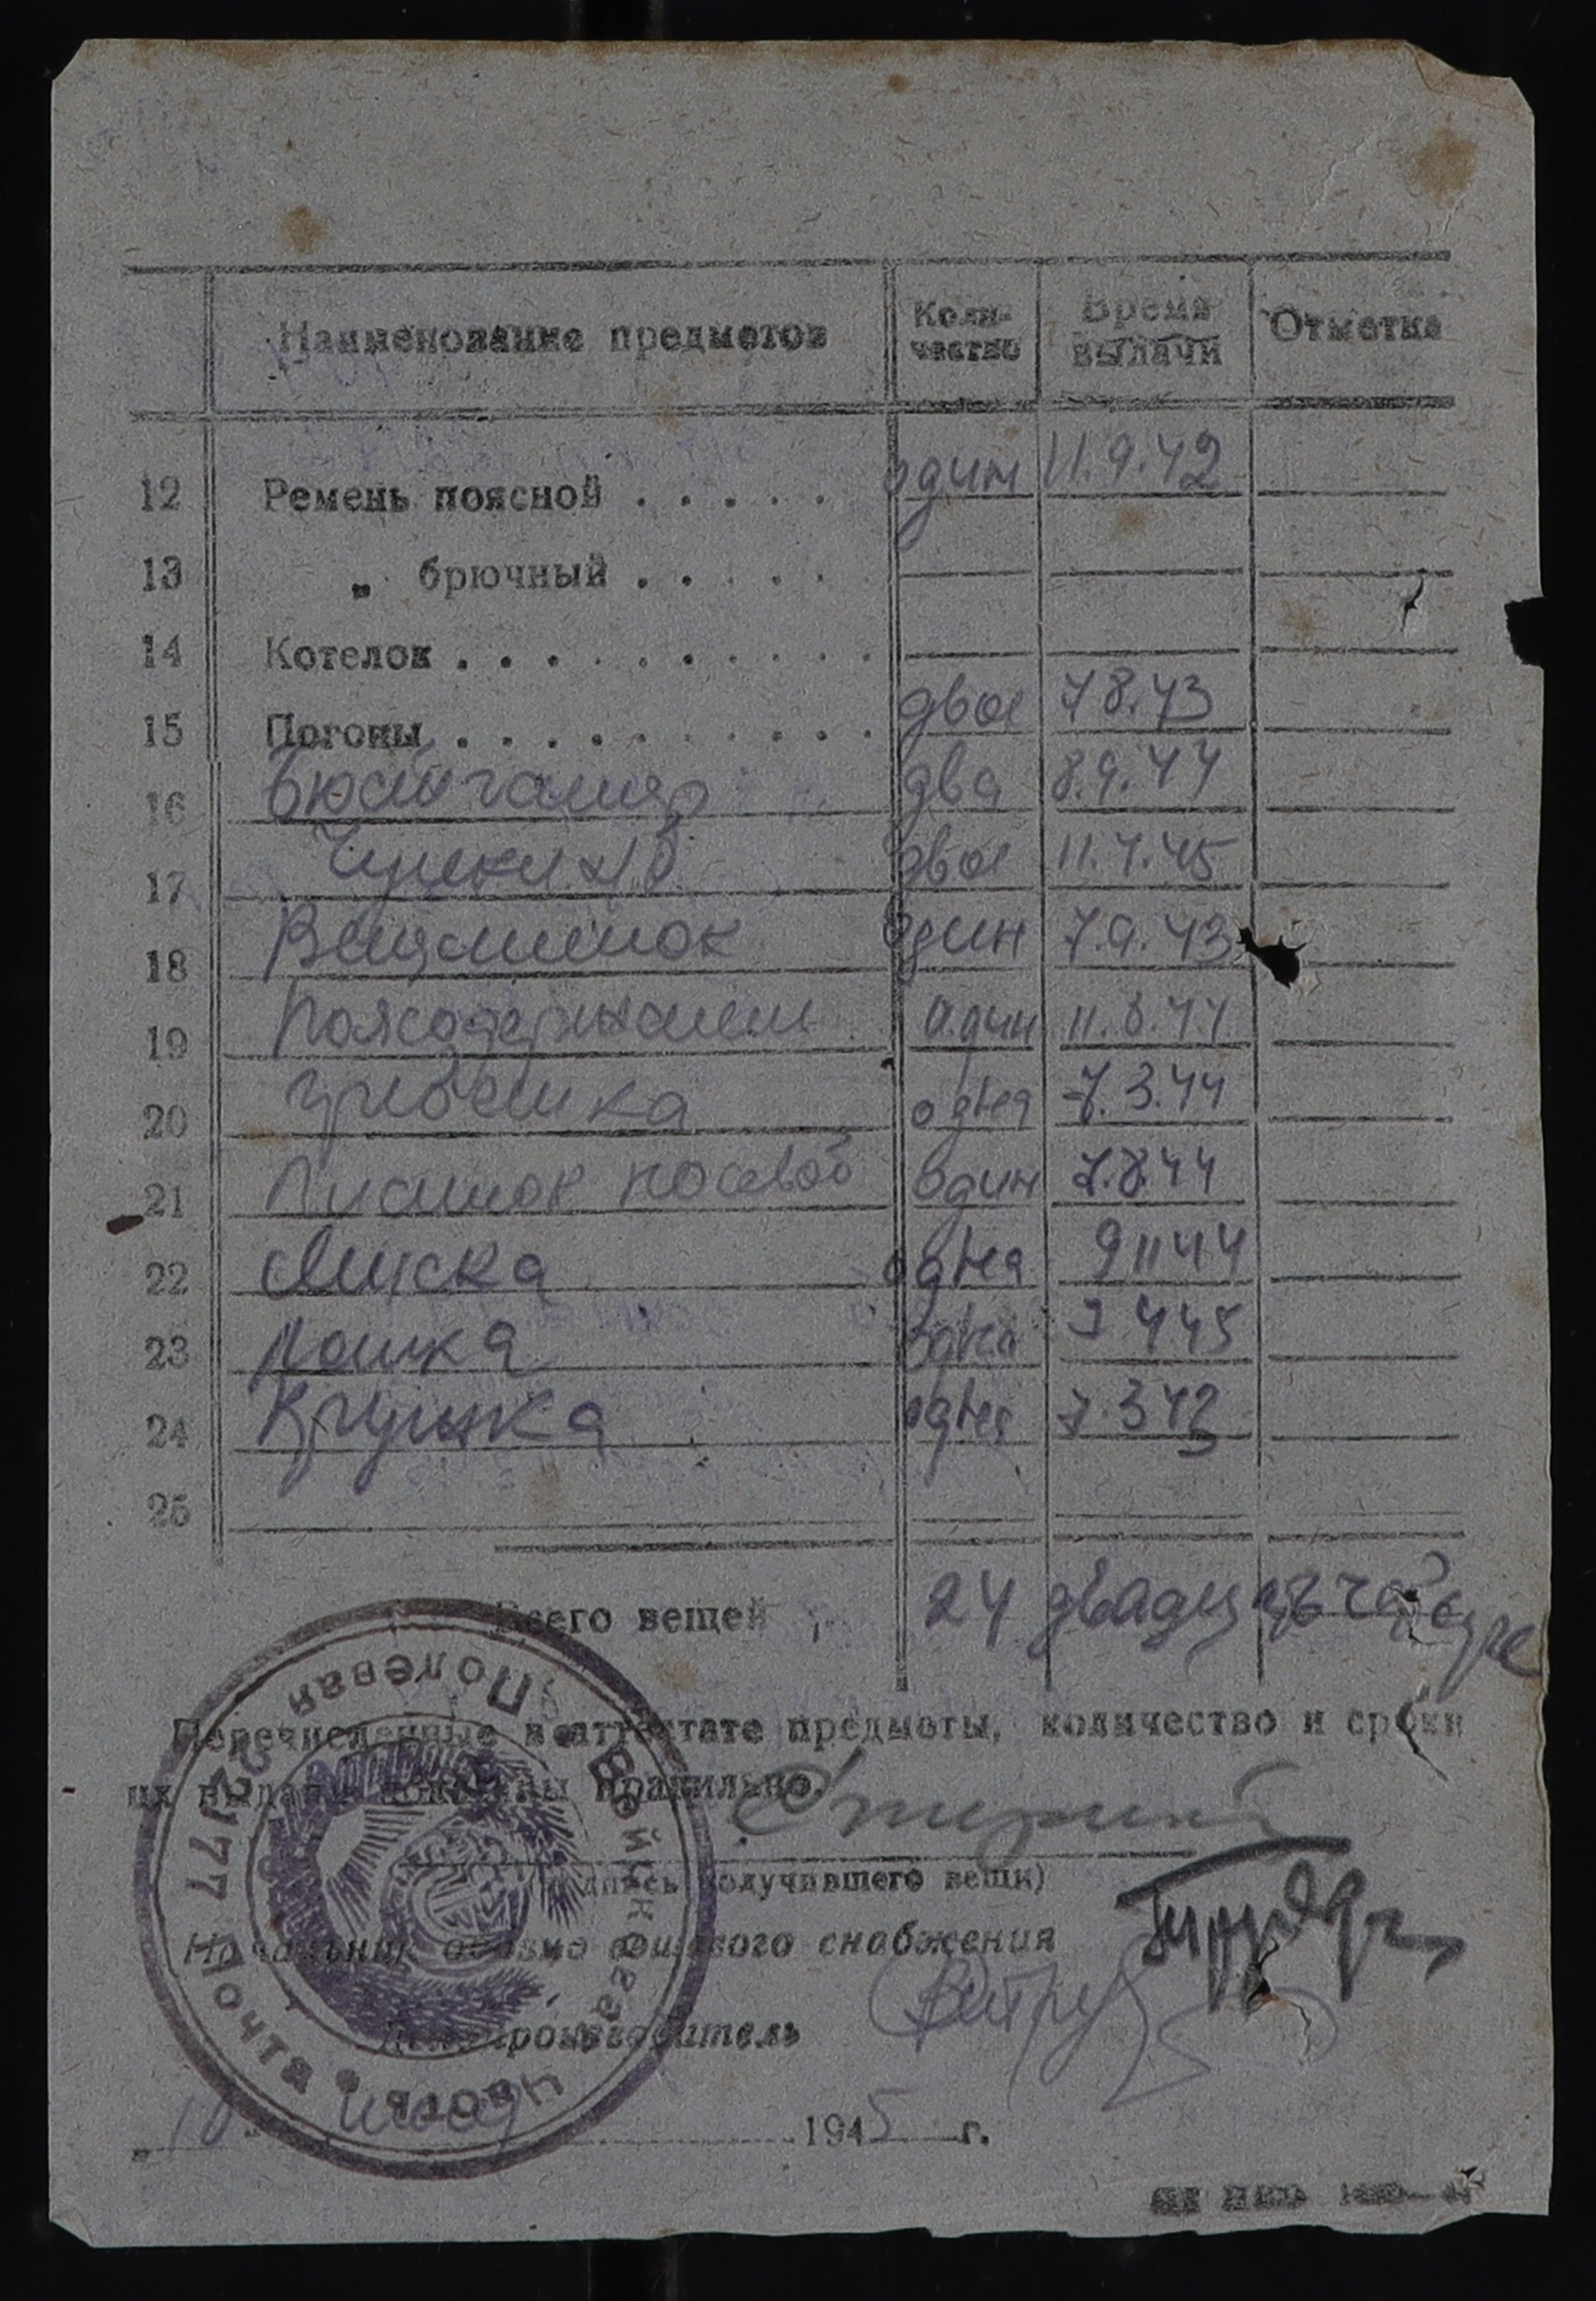 Наименование предметов Коли- Время Отметка
чество выдачи
12 Ремень поясной . . . . . один 11.9.42
13 „ брючный . . . . .
14 Котелок . . . . . . . . . .
15 Погоны . . . . . . . . . . двое 7 8.43
16 Бюстгальтер два 8.9.44
17 Чулки двое 11.4.45
18 Вещмешок один 7.9.43
19 Поясодержатель один 11.3.44
20 одна 7.3.44
21 Платок носовой один 7.8.44
22 Миска одна 9 11 44
23 Ложка одна 445
24 Кружка одна 7.3 43
25
Всего вещей 24 двадцать четыре
Перечисленные в аттестате предметы, количество и сроки
их выдачи показаны правильно.
(подпись получившего вещи)
Начальник обозно-вещевого снабжения
Делопроизводитель
„10" июля 1945 г.
Полевая Почта 22177 Войсковая часть